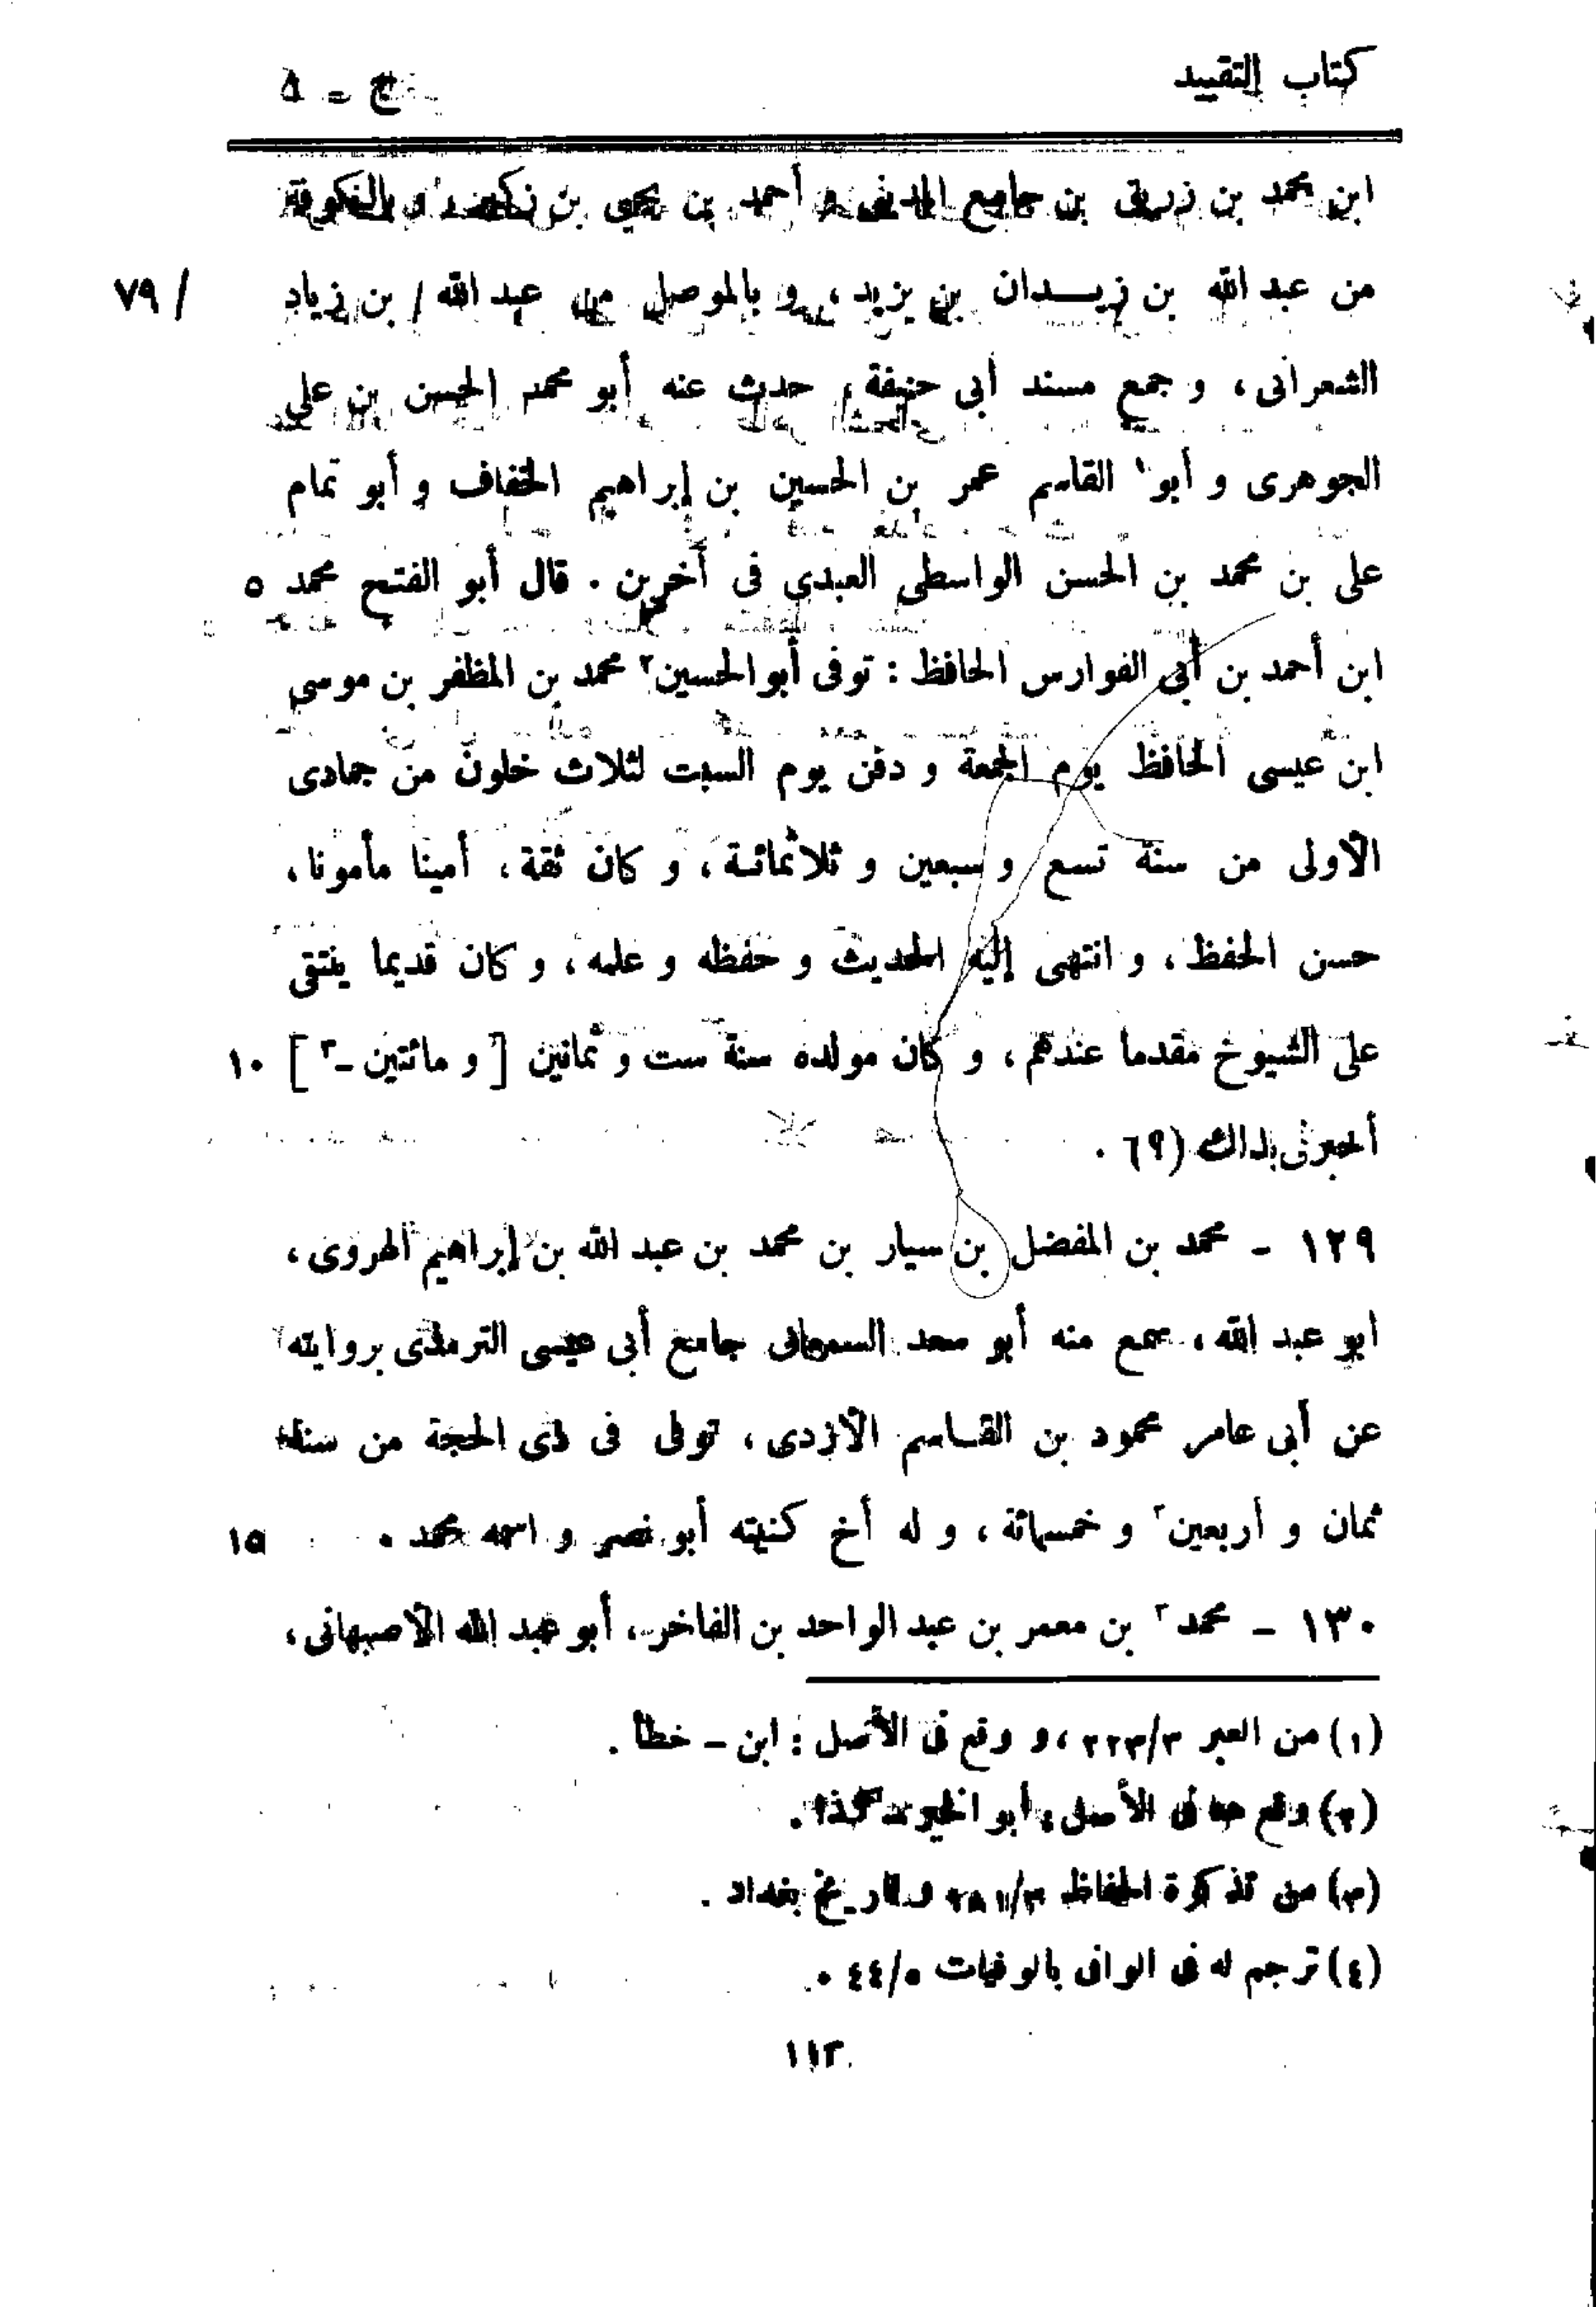 كتاب التقييد ج -
ابن محمد بن بن جامع و أحمد بن يحيى بن
من عبد الله بن زيدان بن يزيد، و بالموصل من عبد الله / بن زياد / ٧٩
الشعرانى، و جمع مسند أبى حنيفة، حدث عنه أبو محمد الحسن بن على
الجوهرى و أبو١ القاسم عمر بن الحسين بن إبراهيم الخفاف و أبو تمام
على بن محمد بن الحسن الواسطى العبدى فى آخرين . قال أبو الفتح محمد ٥
ابن أحمد بن أبى الفوارس الحافظ : توفى أبو الحسين٢ محمد بن المظفر بن موسى
ابن عيسى الحافظ يوم الجمعة و دفن يوم السبت لثلاث خلون من جمادى
الأولى من سنة تسع و سبعين و ثلاثمائة، و كان ثقة، أمينا مأمونا،
حسن الحفظ، و انتهى إليه الحديث و حفظه و علمه، و كان قديما ينتقى
على الشيوخ مقدما عندهم، و كان مولده سنة ست و ثمانين [ و مائتين -٣ ] ١٠
أخبرنى بذلك .
١٢٩ - محمد بن المفضل بن سيار بن محمد بن عبد الله بن إبراهيم الهروى،
ابو عبد الله، سمع منه أبو سعد السمعانى جامع أبى عيسى الترمذى بروايته
عن أبى عامر محمود بن القاسم الأزدى، توفى فى ذى الحجة من سنة
ثمان و أربعين و خمسمائة، و له أخ كنيته أبو نصر و اسمه محمد . ١٥
١٣٠ - محمد بن معمر بن عبد الواحد بن الفاخر، أبو عبد الله الأصبهانى،
(١) من العبر ٣/٢٢٣، و وقع فى الأصل : ابن - خطأ .
(٢) وقع هنا فى الأصل : أبو الخير - كذا .
(٣) من تذكرة الحفاظ و تاريخ بغداد .
(٤) ترجم له فى الوافى بالوفيات ٥/٤٤ .
١١٣